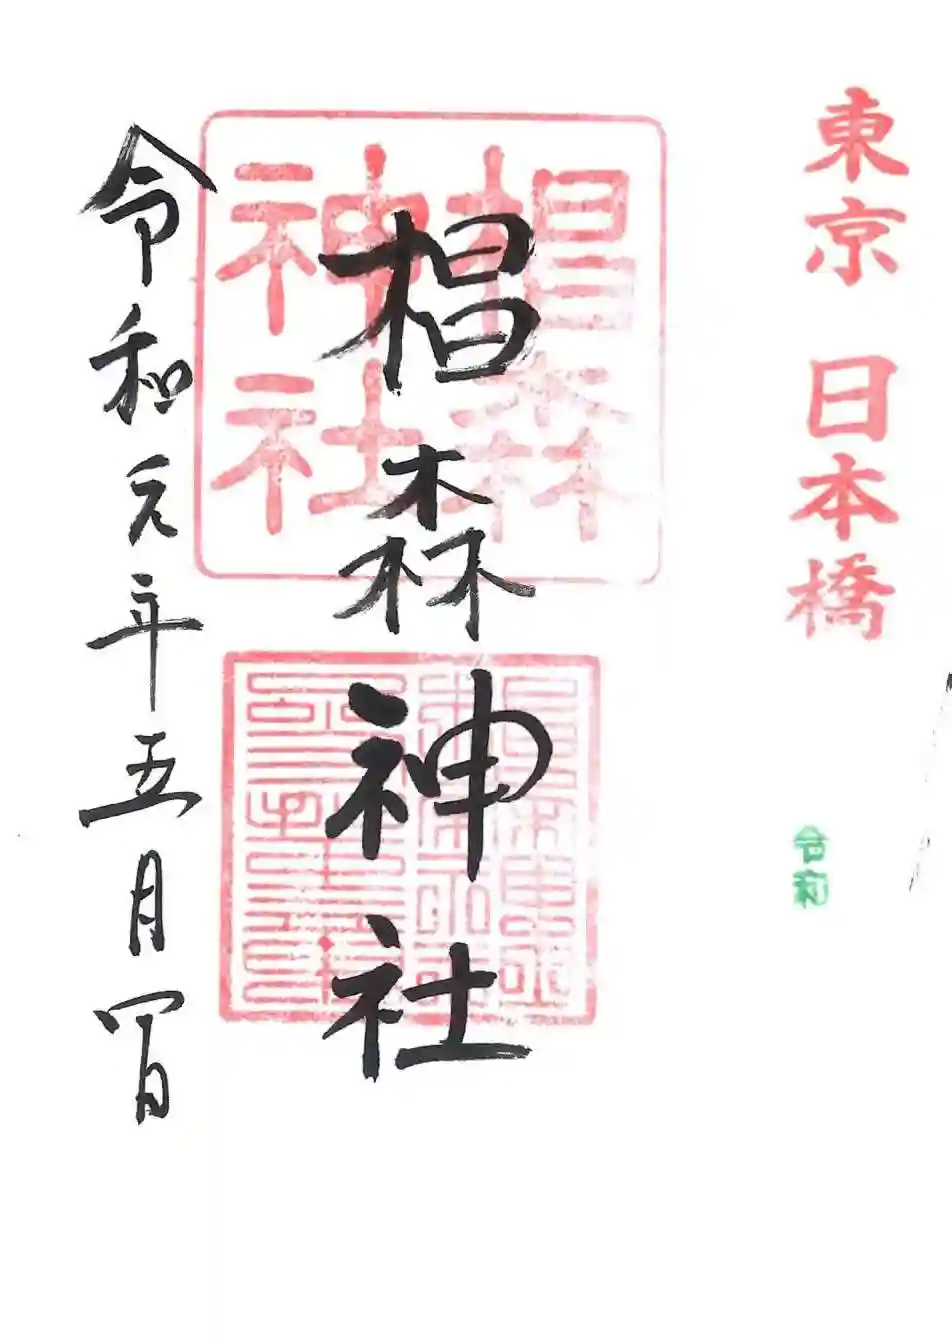 東京 日本橋
令和
椙森
神社
椙森神社
令和元年五月四日